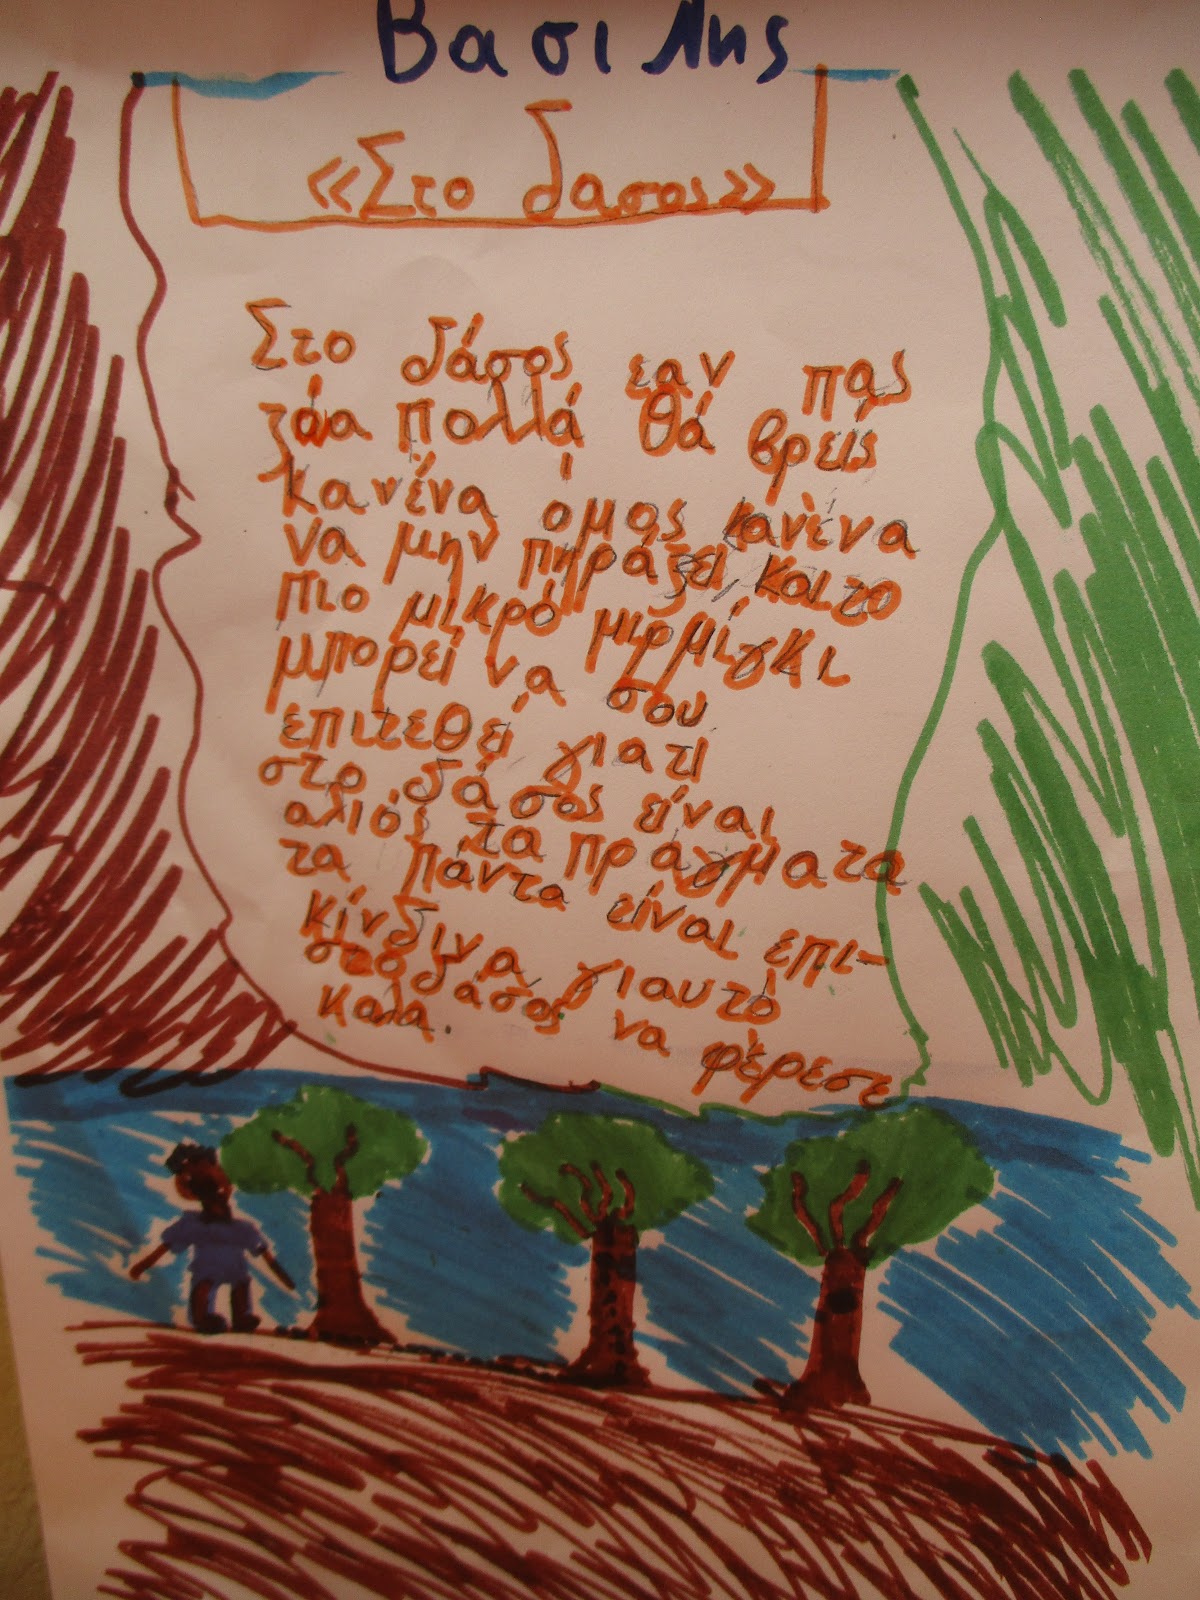 Βασιλης
«Στο δασος»
Στο δάσος εαν πας
ζόα πολλά θά βρείς
κανένα όμος κανένα
να μην πηράξει, και το
πιο μικρό μιρμίγκι
μπορεί να σου
επιτεθεί γιατί
στο δάσος είναι
αλιός τα πράγματα
τα πάντα είναι επι-
κίνδινα γιαυτό
στο δάσος να φέρεσε
καλα.